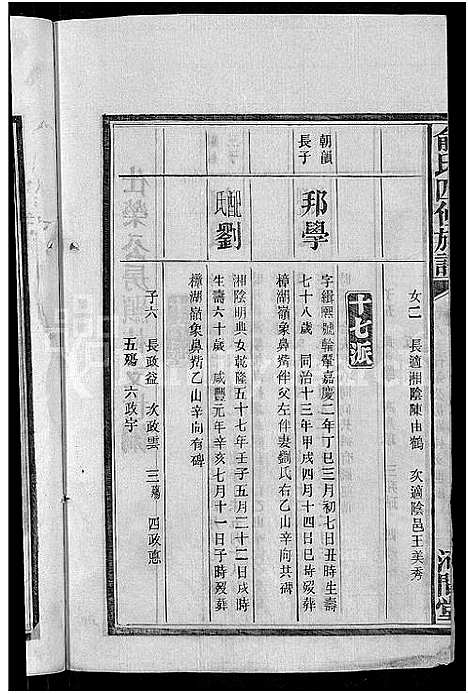 俞氏四修族譜
河間堂
女二 長適湘陰陳由鶴 次適陰邑王美秀
十七派
朝韻長子
邦學
字緝熙號翰肇嘉慶二年丁巳三月初七日丑時生壽
七十八歲 同治十三年甲戌四月十四日巳時歿葬
樟湖嶺象鼻嘴伴父左伴妻劉氏右乙山辛向共碑
配劉氏
湘陰明典女乾隆五十七年壬子五月二十二日戌時
生壽六十歲 咸豐元年辛亥七月十一日子時歿葬
樟湖嶺象鼻嘴乙山辛向有碑
子六 長政益 次政雲 三殤 四政惪
五殤 六政宇